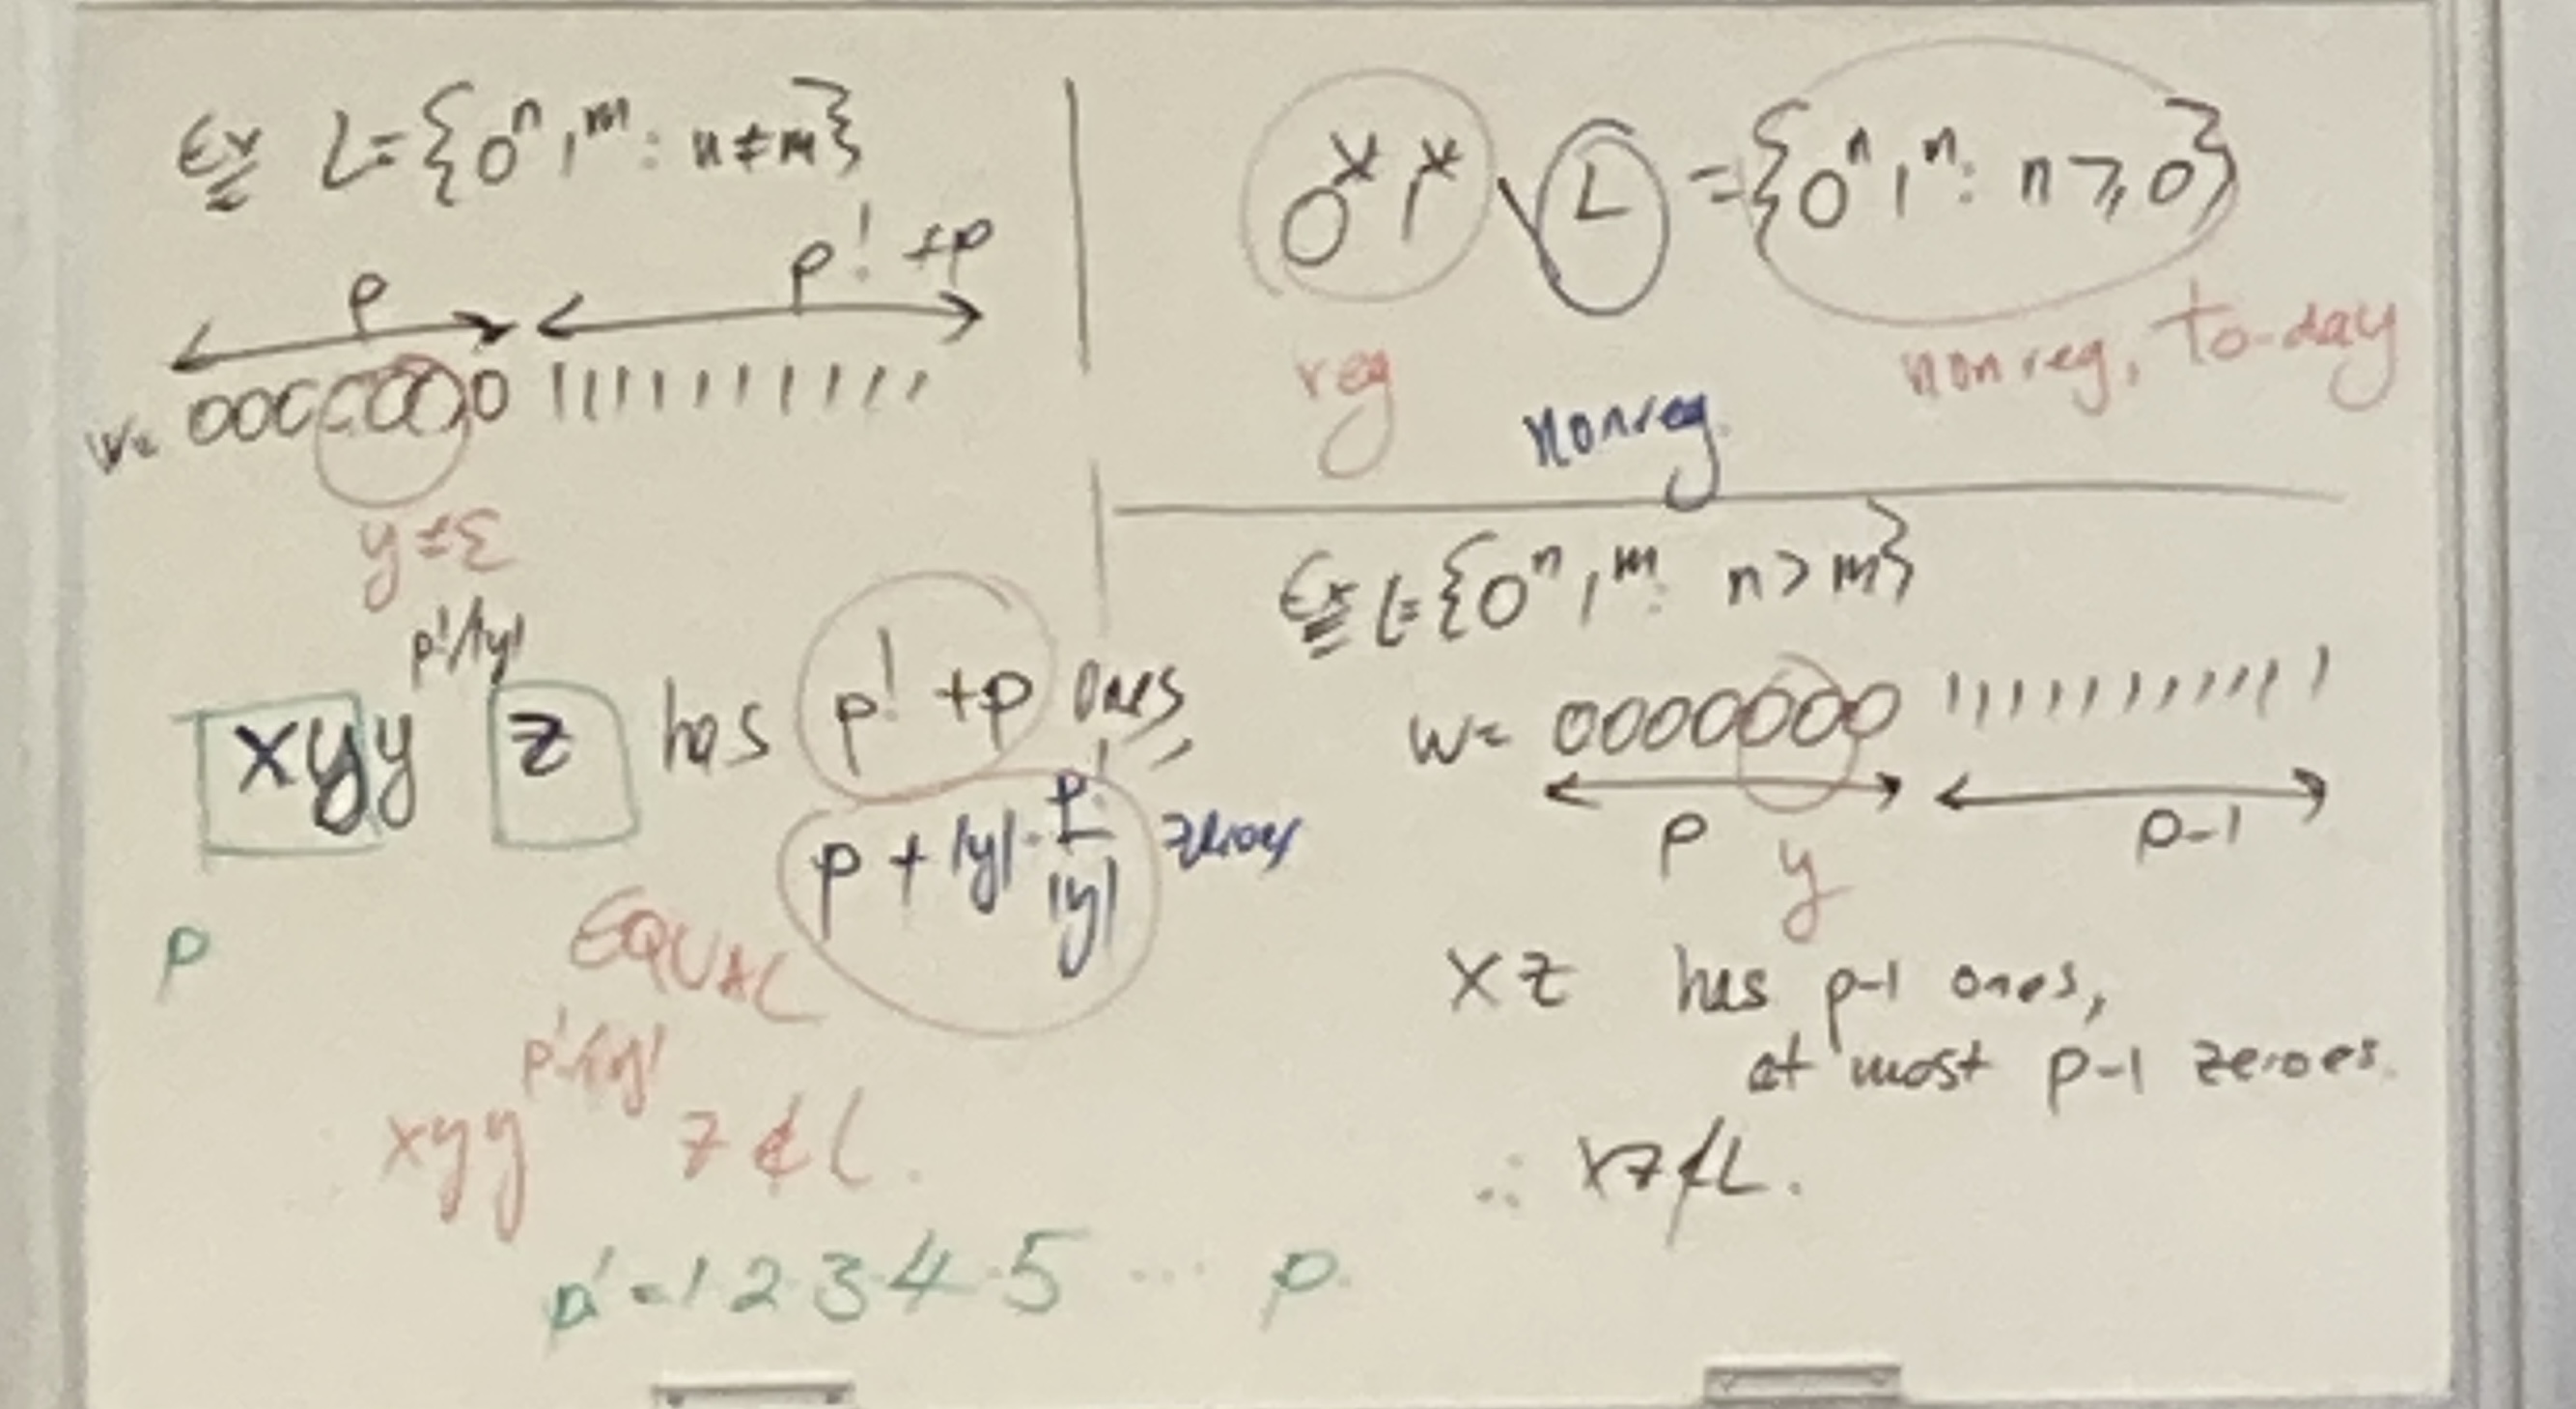 Ex L={0ⁿ1ᵐ: n≠m}
p p!+p
w= 00000000 11111111111
y≠ε
xyy^{p!/|y|} z has p!+p ones,
p+|y|·p!/|y| zeroes
p
EQUAL
xyy^{p!/|y|} z∉L.
p!=1·2·3·4·5 ... p.
0*1* \ L = {0ⁿ1ⁿ: n≥0}
reg nonreg. nonreg, to-day
Ex L={0ⁿ1ᵐ: n>m}
w= 00000000 11111111111
p y p-1
xz has p-1 ones,
at most p-1 zeroes.
∴ xz∉L.